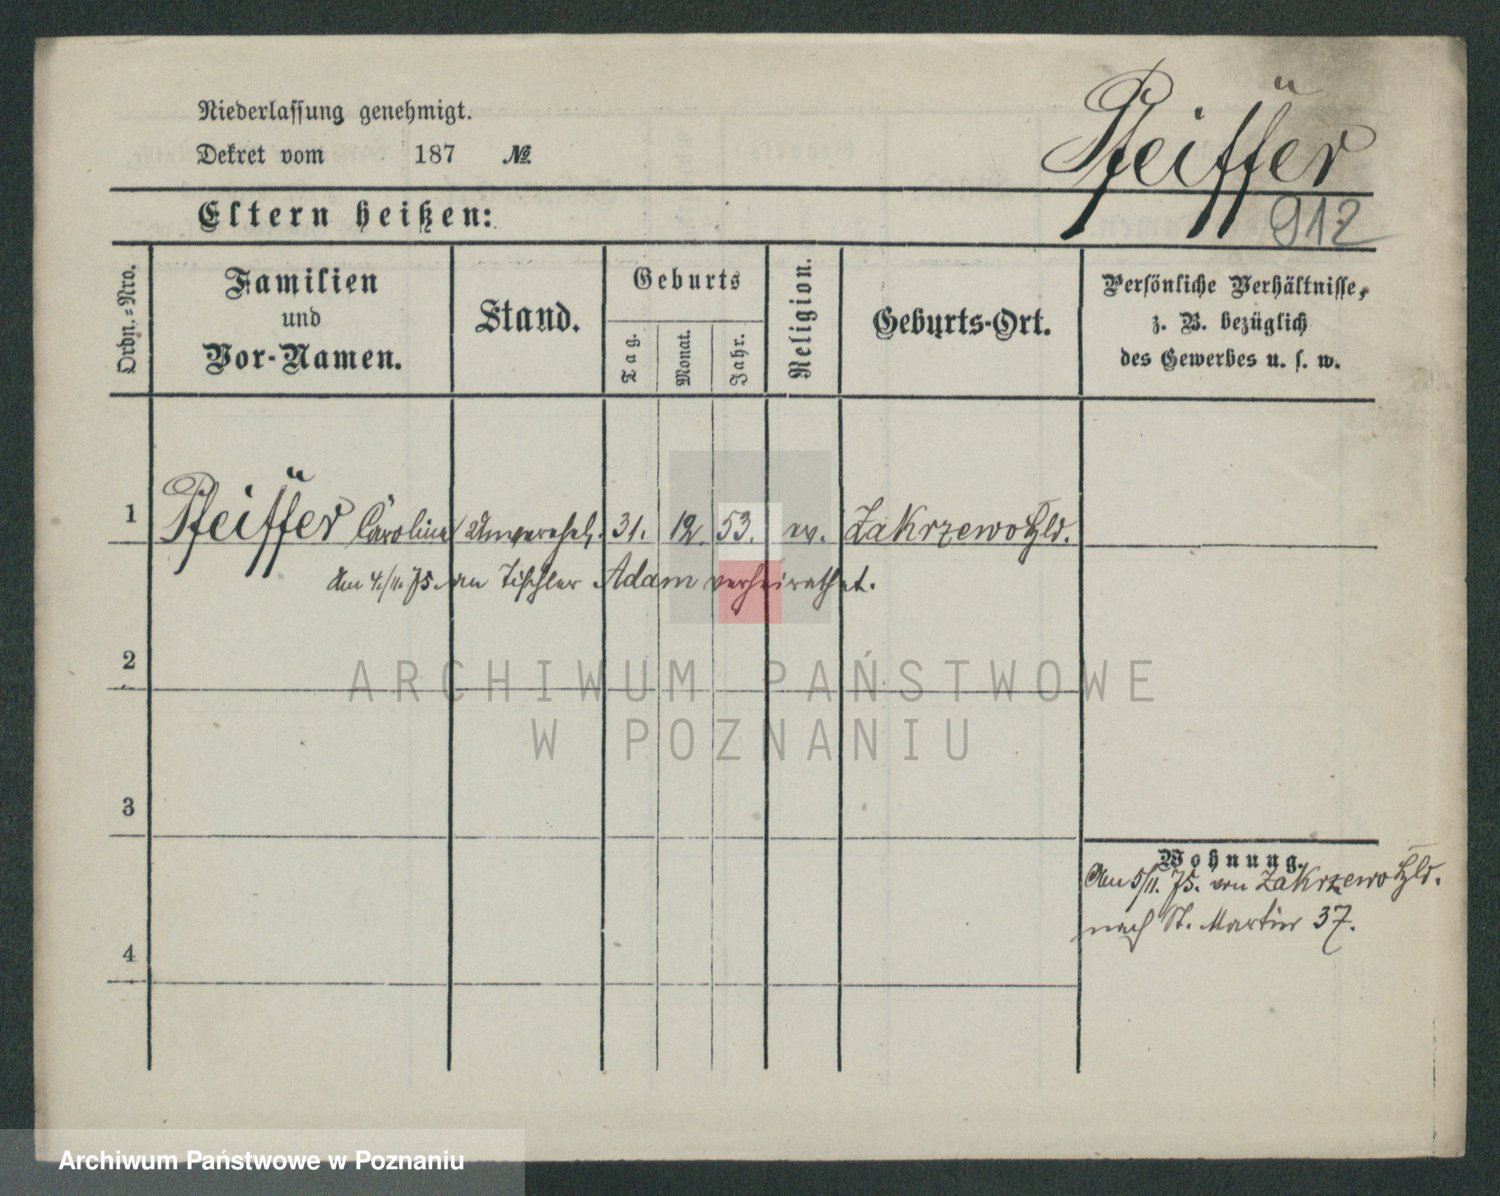 Niederlassung genehmigt.
Dekret vom 187 №
Pfeiffer
912
Eltern heißen:
Ordn.-Nro.
Familien und Vor-Namen.
Stand.
Geburts
Tag.
Monat.
Jahr.
Religion.
Geburts-Ort.
Persönliche Verhältnisse,
z. B. bezüglich
des Gewerbes u. s. w.
1 Pfeiffer Caroline Unverehel. 31. 12. 53. ev. Zakrzewo Hld.
Am 4./11. 75. an Tischler Adam verheirathet.
2
3
4
Wohnung.
Am 5/11. 75. von Zakrzewo Hld.
nach St. Martin 37.
ARCHIWUM PAŃSTWOWE
W POZNANIU
Archiwum Państwowe w Poznaniu